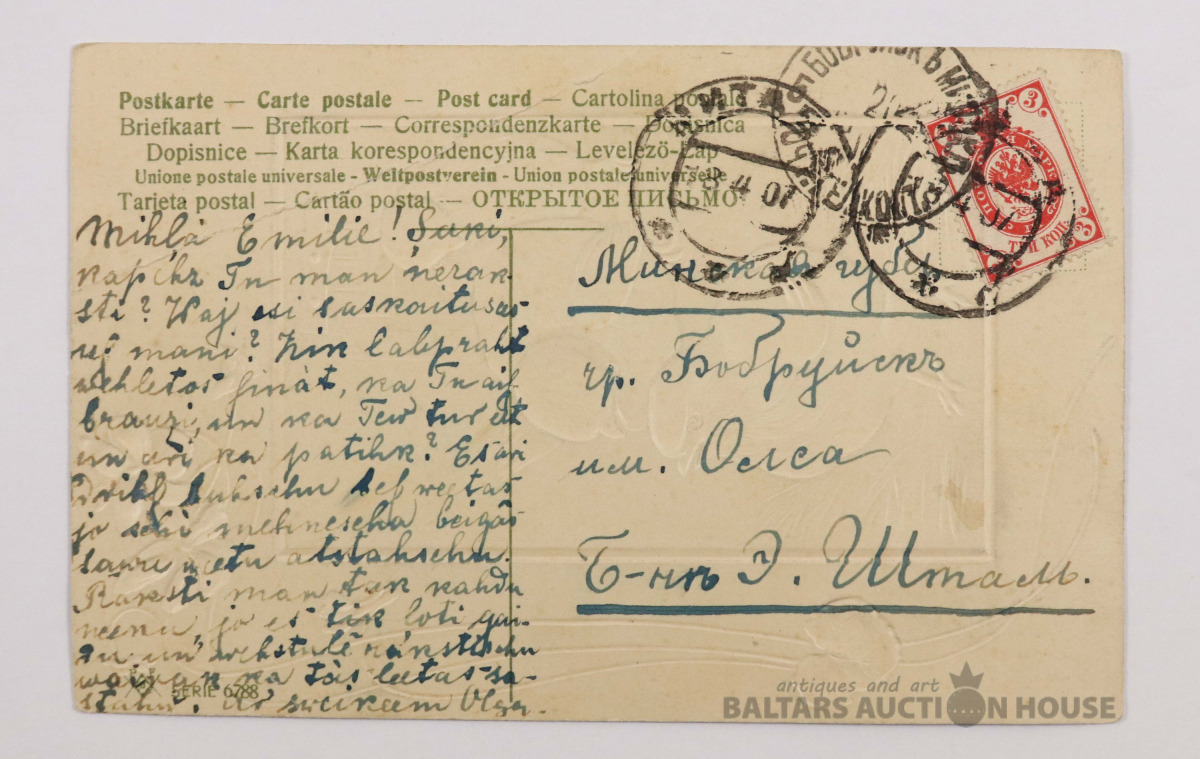 Postkarte — Carte postale — Post card — Cartolina postale
Briefkaart — Brefkort — Correspondenzkarte — Dopisnica
Dopisnice — Karta korespondencyjna — Levelező-Lap
Unione postale universale - Weltpostverein - Union postale universelle
Tarjeta postal — Cartão postal — ОТКРЫТОЕ ПИСЬМО
Mihlā Emilie! Saki,
kapehz Tu man nerak-
sti? Waj esi saskaitusas
us mani? Kik labpraht
wehletos sināt, ka Tu aif-
brauzi, un ka Tew tur eet
un ari ka patihk? Es ari
drihs buhschu bes weetas
jo schi mehnescha beigās
sawu weetu atstahschu.
Raksti man tak kahdu
reenu, jo es tik loti gai-
du un wehstulē rakstischu
wairak ka tās leetas sa-
stahw. Ar sweizeem Olga.
SERIE 6788
Минская губ.
гр. Бобруйскъ
им. Олса
Б-нъ Э. Шталь.
ЧИТА
8 4 07
БОБРУЙСКЪ МИНСК.
3
МАРКА
ТРИ КОП.
3
antiques and art
BALTARS AUCTION HOUSE